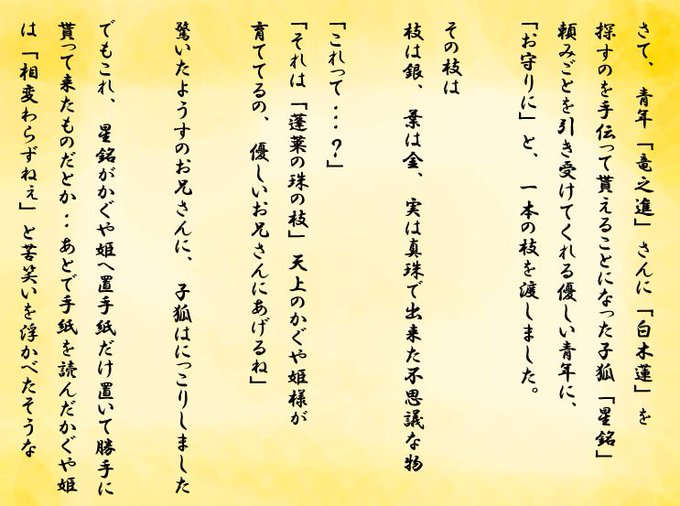 さて、青年「竜之進」さんに「白木蓮」を
探すのを手伝って貰えることになった子狐「星銘」
頼みごとを引き受けてくれる優しい青年に、
「お守りに」と、一本の枝を渡しました。
その枝は
枝は銀、葉は金、実は真珠で出来た不思議な物
「これって・・・？」
「それは「蓬莱の珠の枝」天上のかぐや姫様が
育ててるの、優しいお兄さんにあげるね」
驚いたようすのお兄さんに、子狐はにっこりしました
でもこれ、星銘がかぐや姫へ置手紙だけ置いて勝手に
貰って来たものだとか・・あとで手紙を読んだかぐや姫
は「相変わらずねぇ」と苦笑いを浮かべたそうな